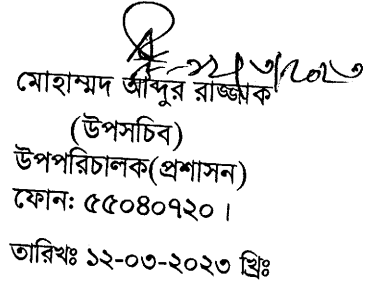 মোহাম্মদ আব্দুর রাজ্জাক
(উপসচিব)
উপপরিচালক(প্রশাসন)
ফোন: ৫৫০৪০৭২০।
তারিখঃ ১২-০৩-২০২৩ খ্রিঃ